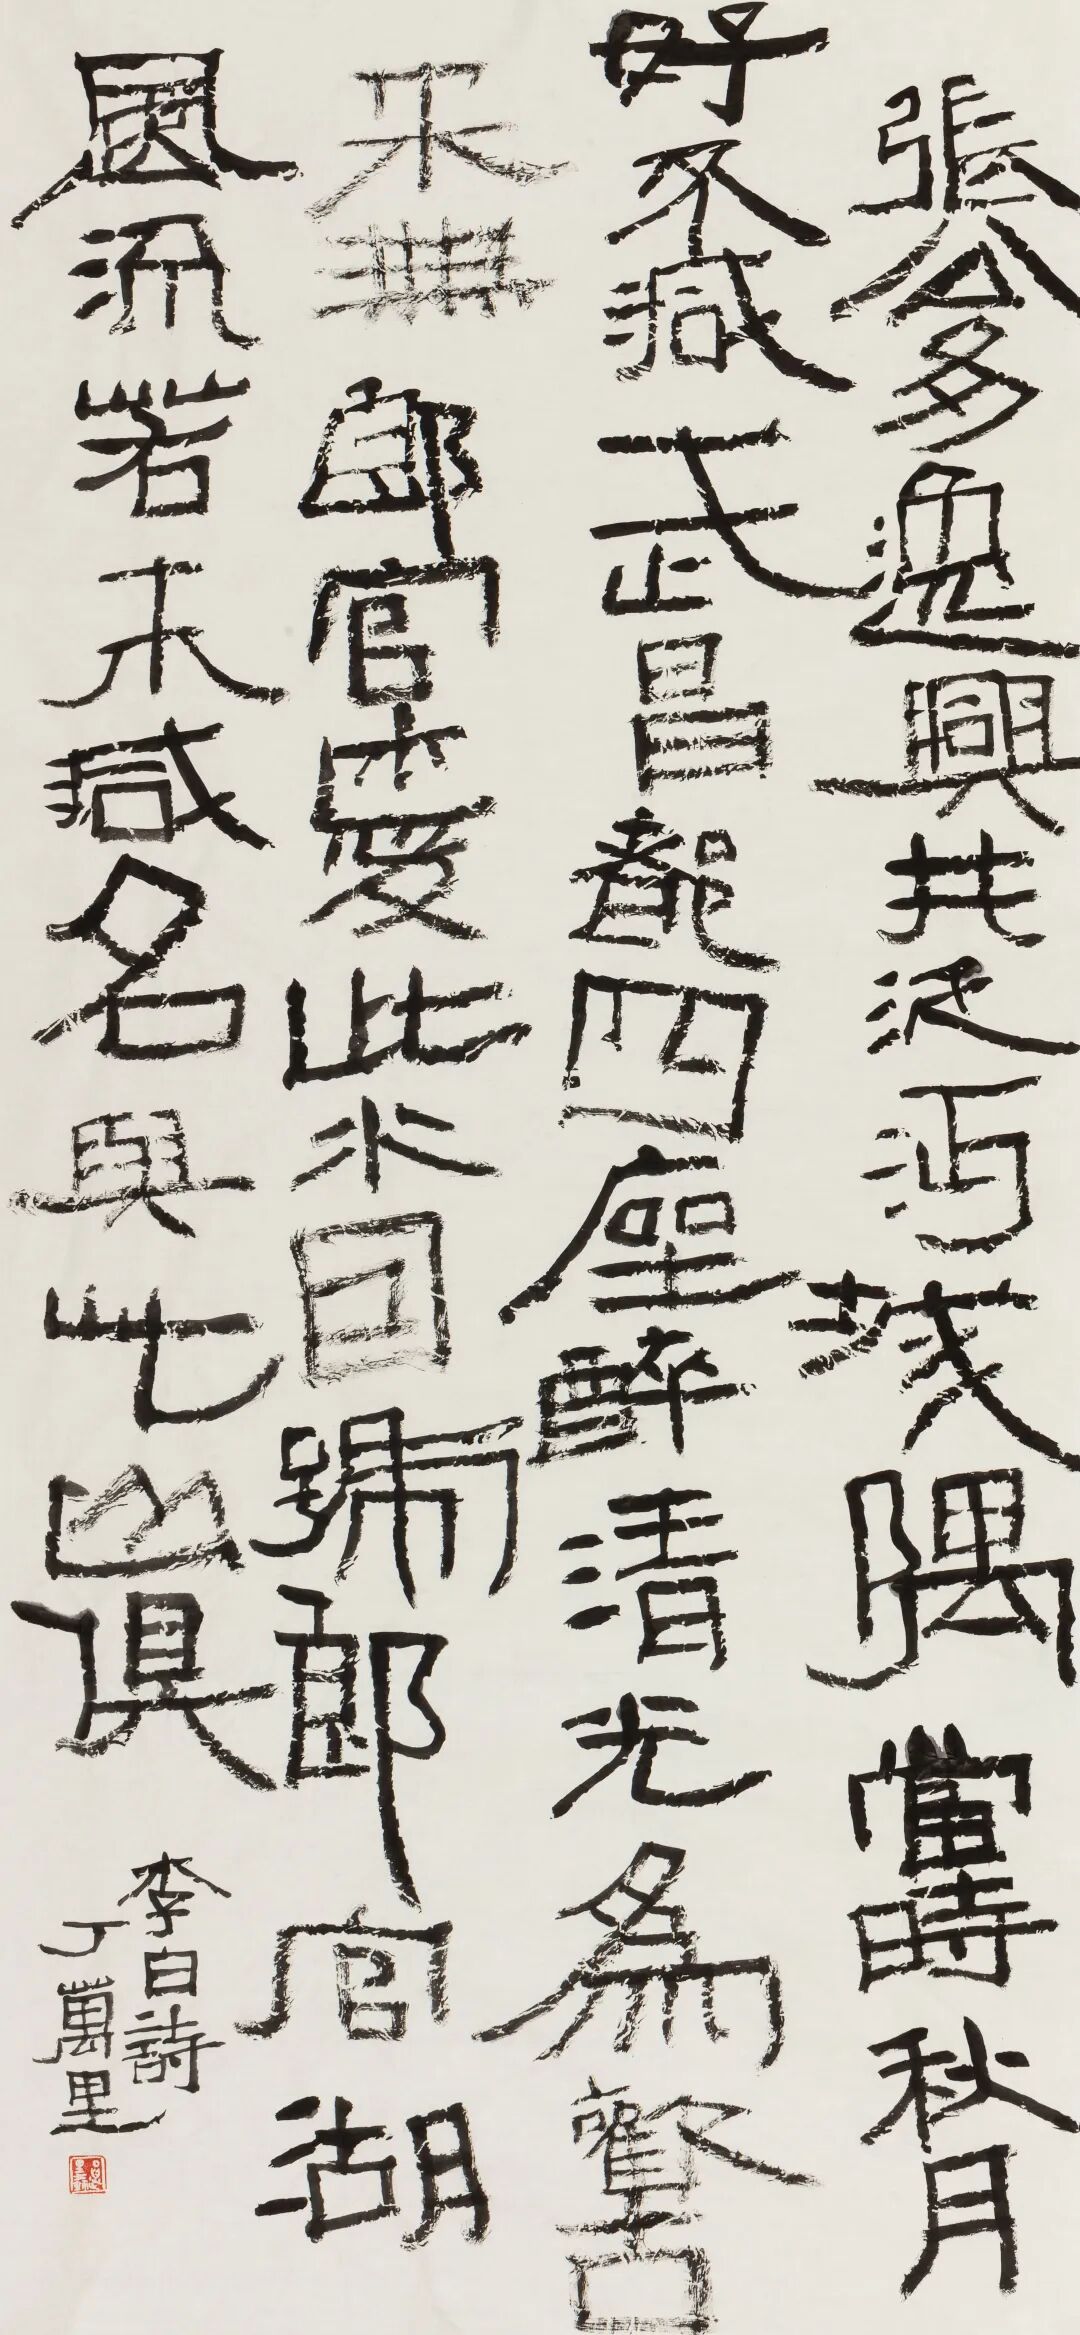 張公多逸興共泛沔城隅當時秋月
好不減武昌都四座醉清光為歡古
来無郎官愛此水因號郎官湖
風流若未減名與此山俱
李白詩
丁萬里